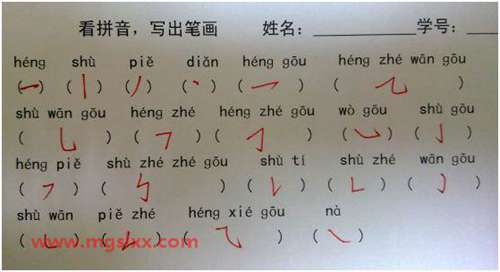 看拼音，写出笔画 姓名：__________ 学号：____
héng shù piě diǎn héng gōu héng zhé wān gōu
(㇐) (㇑) (㇒) (㇔) (㇖) (㇈)
shù wān gōu héng zhé héng zhé gōu wò gōu shù gōu
(㇟) (㇕) (㇆) (㇃) (㇚)
héng piě shù zhé zhé gōu shù tí shù zhé wān gōu
(㇇) (㇉) (㇙) (㇗) (㇁)
shù wān piě zhé héng xié gōu nà
(㇄) (㇜) (⺄) (㇏)
www.mgslxx.com